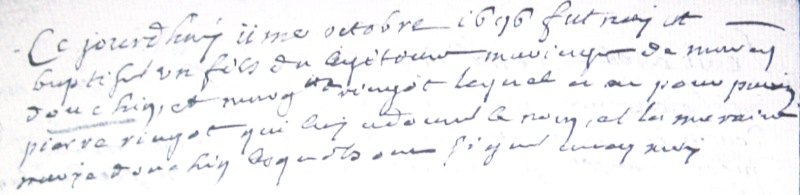 Ce jourdhuy iime octobre 1696 fut nay et
baptisé un fils du legitme mariage de
douchin, et marg tte ringot lequel a eu pour parin
pierre ringot qui luy a donné le nom, et la maraine
marie douchin lesquels ont signé avecq moy